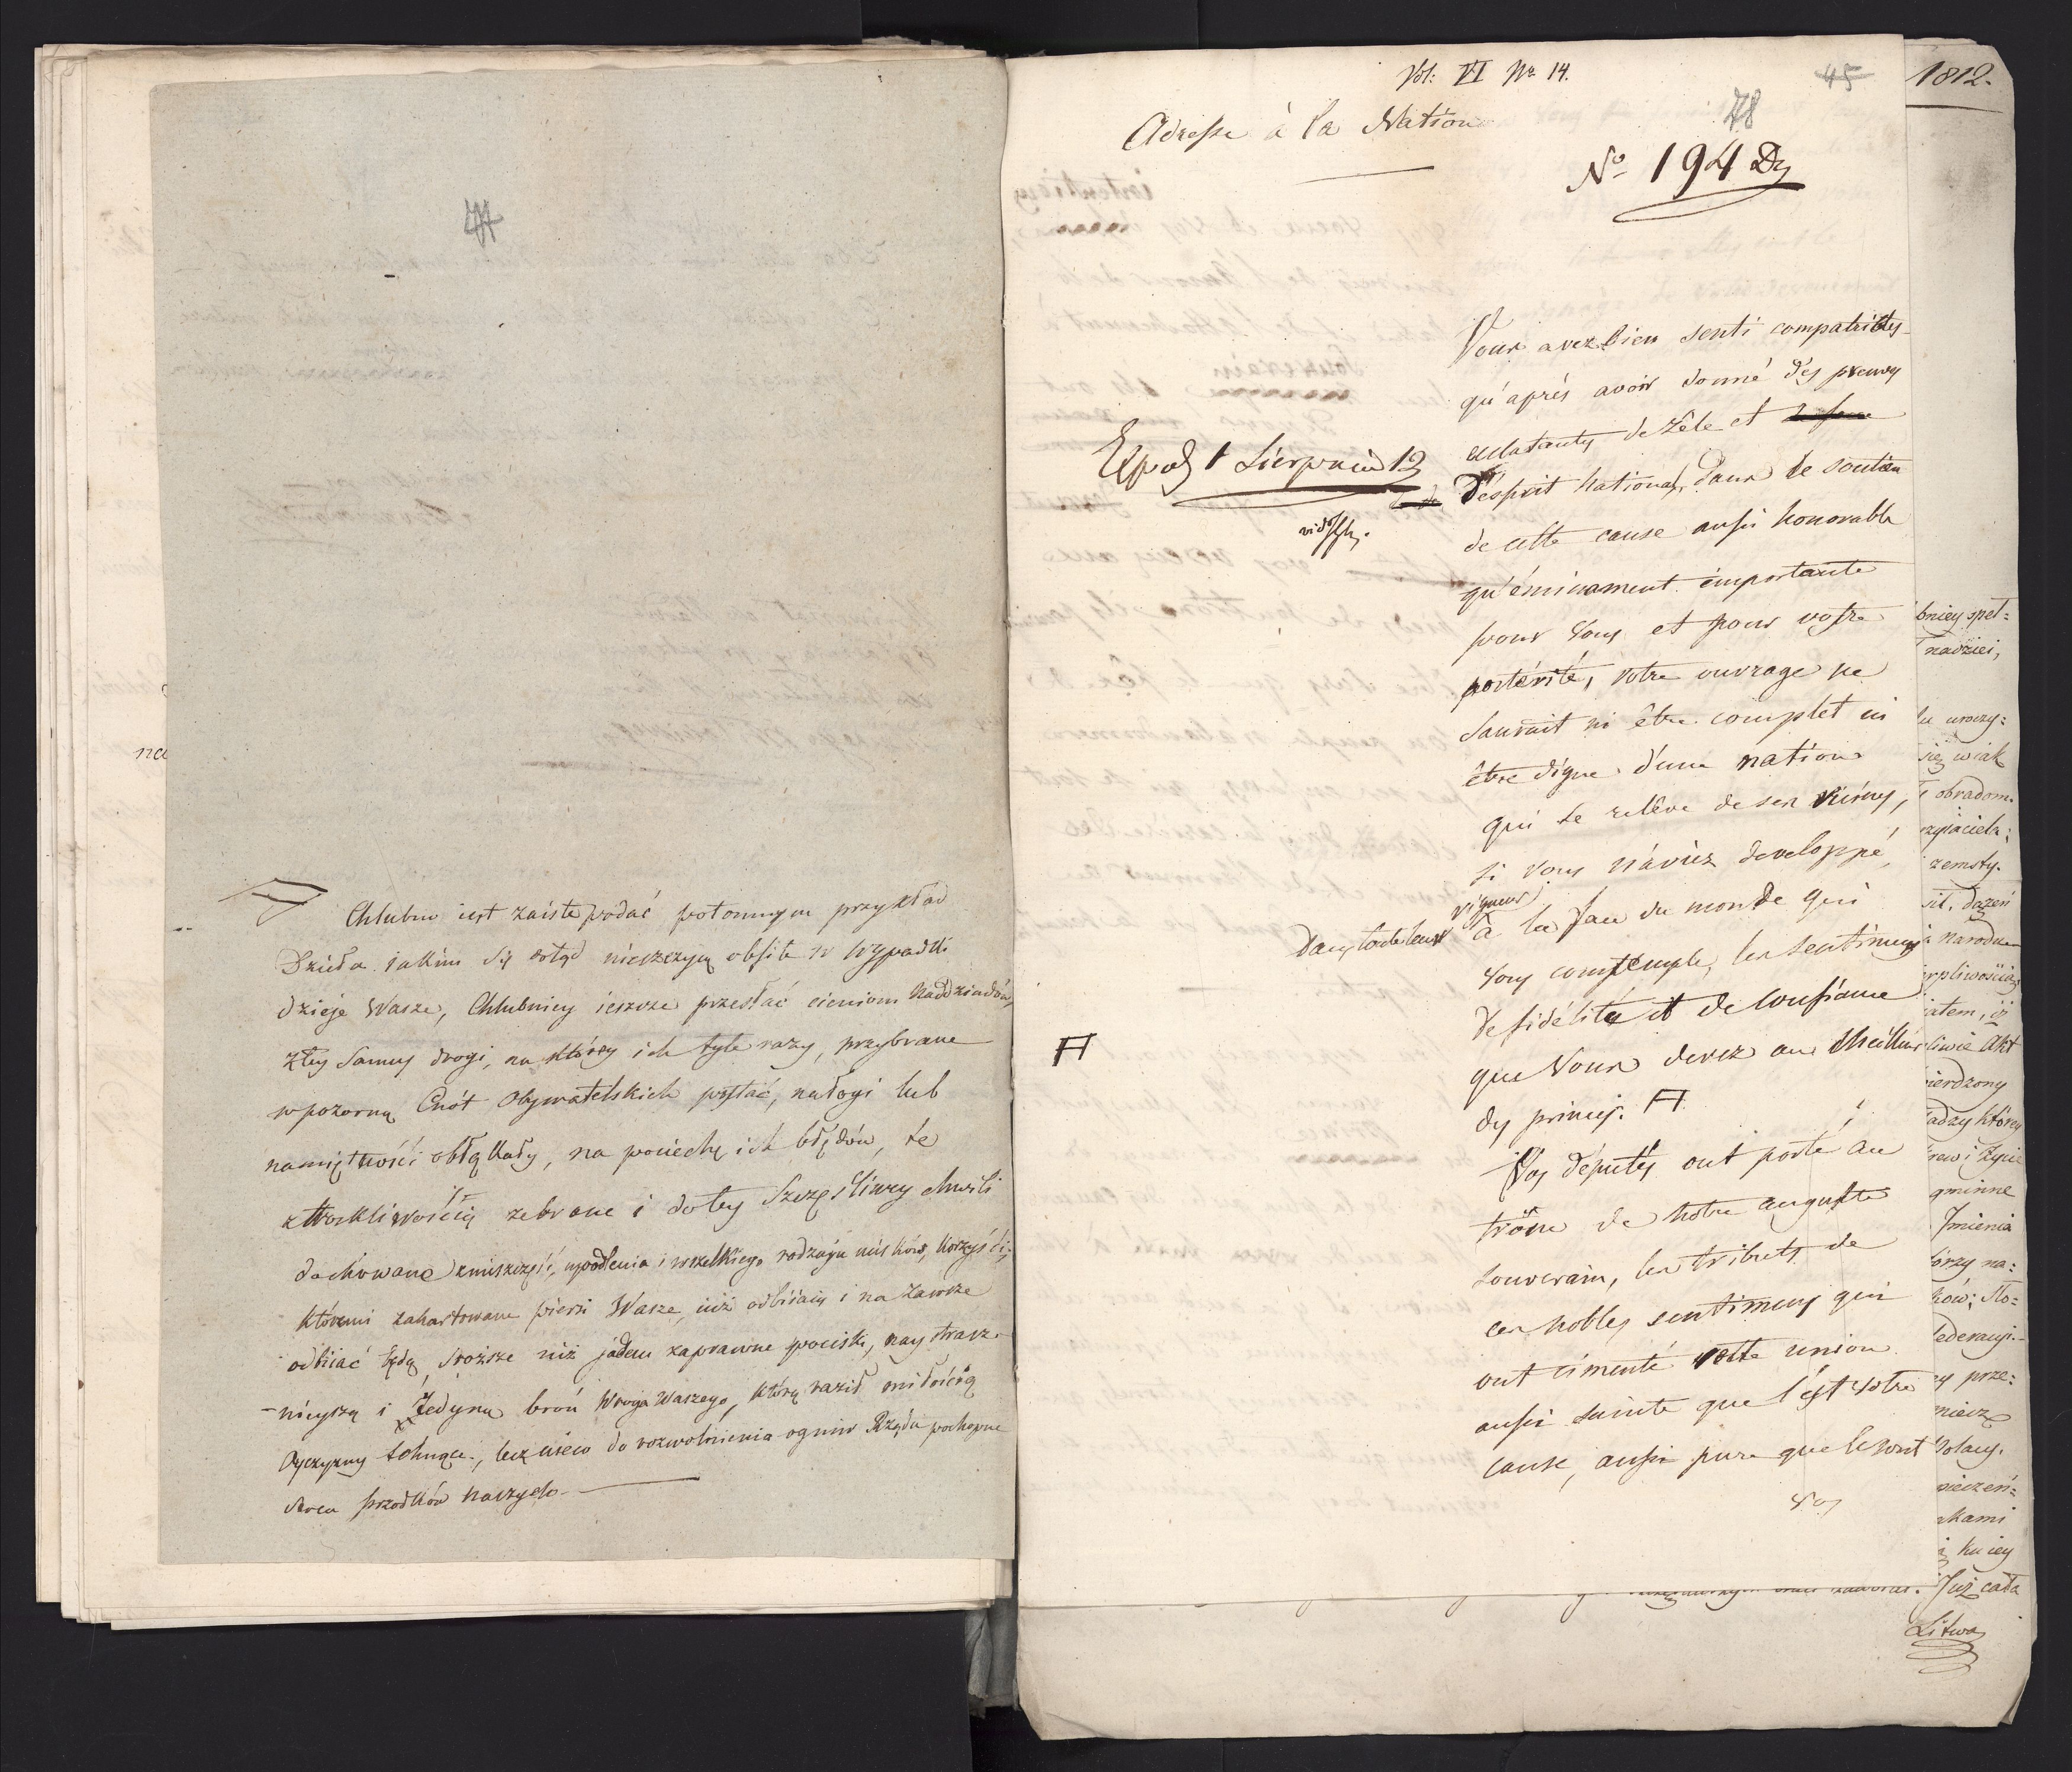 44
na
Chlubno iest zaiste podać potomnym przykład
Dzieła iakim się dotąd nieszczycą obfite w wypadki
dzieje Wasze, Chlubniey ieszcze przesłać cieniom Naddziadów,
z tey samey drogi, na którey ich tyle razy, przybrane
w pozorną Cnót Obywatelskich postać, nałogi lub
namiętności obłąkały, na pociechę ich błędów, te
z troskliwością zebrane i do tey szczęśliwey chwili
dochowane zniszczyć, upodlenia i wszelkiego rodzaju ucisków, korzyści;
któremi zahartowane piersi Wasze, iuż odbiiaią i na zawsze
odbiiać będą, sroższe niż jadem zaprawne pociski, naystrasz-
nieyszą i Jedyną broń Wroga Waszego, którą raził miłością
Oyczyzny tchnące, lecz nieco do rozwolnienia ogniw Rządu pochopne
serca przodków naszych.
Vol: VI Nr 14.
45
1812.
78
Adresse à la Nation
No 194 Dz
Exped 1 Sierpnia 12
Vous avez bien senti compatriotes
qu'après avoir donné des preuves
eclatantes de zêle et
d'esprit national, dans le soutien
de cette cause aussi honorable
qu'éminament importante
pour vous et pour votre
postérité, votre ouvrage ne
saurait ni être complet ni
être digne d'une nation
qui se relêve de ses ruines,
si vous n'aviez developpé,
dans toute leur vigueur
à la face du monde qui
vous contemple, les sentimens
de fidélité et de confiance
que Vous devez au meilleur
des princes.
Vos députés ont porté au
trône de notre auguste
souverain, les tributs de
ces nobles sentimens qui
ont cimenté cette union
aussi sainte que l'est votre
cause, aussi pure que le sont
vos
bniey speł=
nadziei,
się wiak
obradom
zemsty.
narodu
Akt
ierdzony
adzy którey
rew i życie
gminne
Imienia
órzy na=
ków; Sto=
ederacyi
ey prze=
miecz
wołaney.
nieczeń=
kami
ku iey
Już cała
Litwa